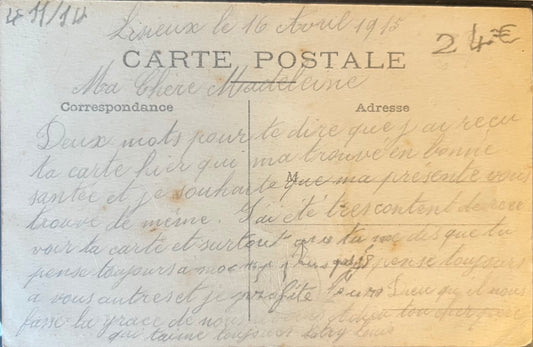 4 11/14
Lisieux le 16 Avril 1915
24€
CARTE POSTALE
Ma Chère Madeleine
Correspondance
Adresse
Deux mots pour te dire que j ai recu
ta carte hier qui ma trouve en bonne
M
santée et je souhaite que ma présente vous
trouve de même. J'ai été tres content de rece
voir ta carte et surtout que tu me dis que tu
pense toujours a moi pense toujours
a vous autres et je Dieu qu il nous
fasse la grace de nous ton cher père
qui t'aime toujours